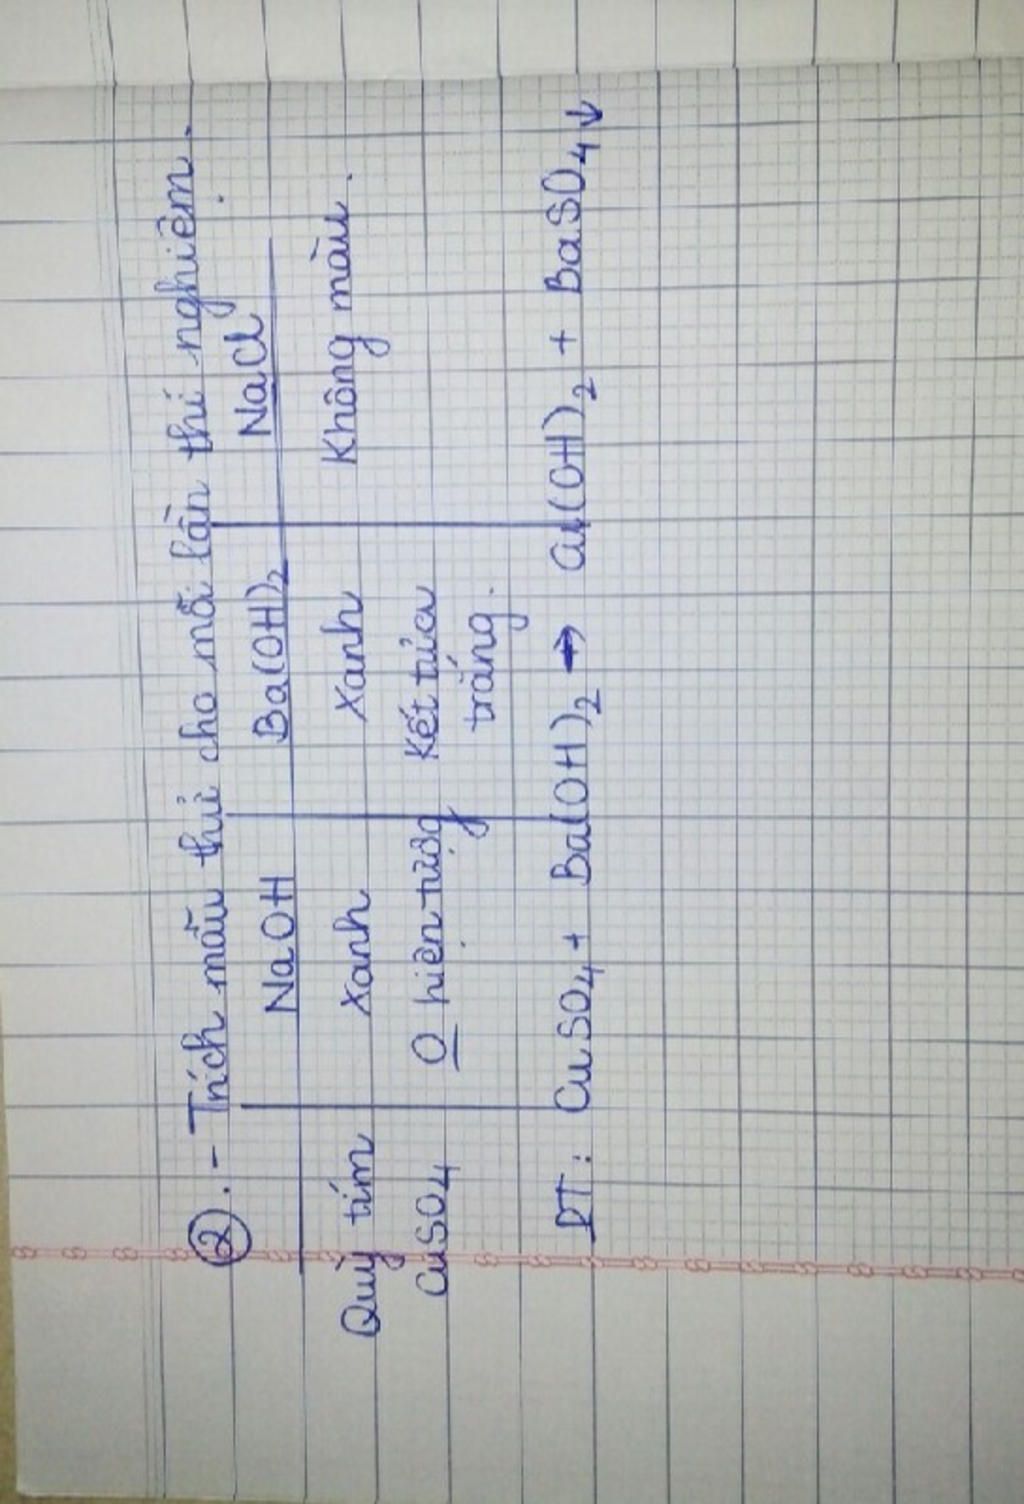 ②. - Trích mẫu thử cho mỗi lần thí nghiệm.
NaOH Ba(OH)2 NaCl
Quỳ tím Xanh Xanh Không màu.
CuSO4 O hiện tượg Kết tủa
trắng.
PT: CuSO4 + Ba(OH)2 → Cu(OH)2 + BaSO4↓